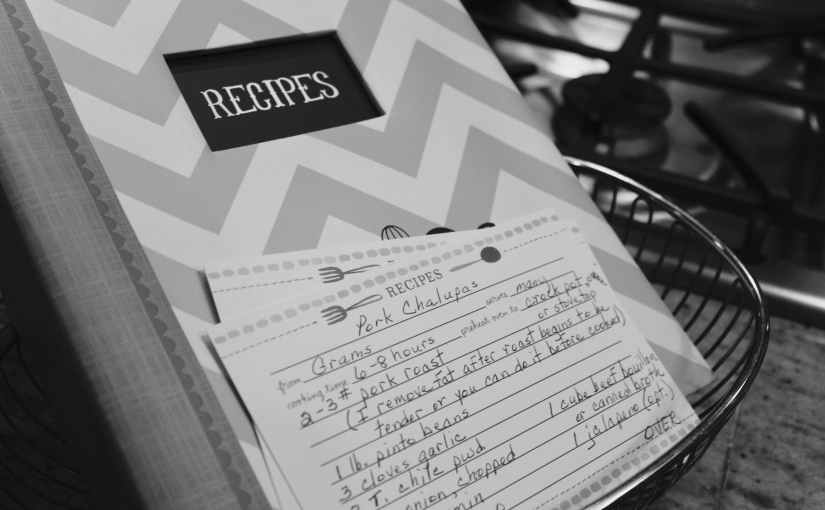 RECIPES
RECIPES
Pork Chalupas
from Grams serves many
cooking time 6-8 hours preheat oven to crock pot
or stovetop
2-3# pork roast
(I remove fat after roast begins to be
tender or you can do it before cooked)
1 lb. pinto beans
3 cloves garlic 1 cube beef bouillon
2 T. chile pwd or canned broth
onion, chopped 1 jalapeno (opt.)
min
OVER